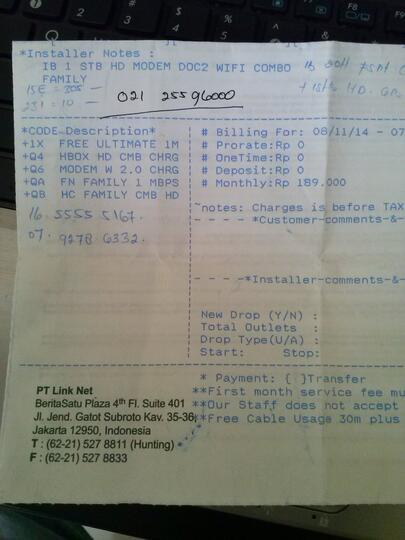 *Installer Notes :
IB 1 STB HD MODEM DOC2 WIFI COMBO
FAMILY
021 25596000
*CODE-Description*
+1X FREE ULTIMATE 1M
+Q4 HBOX HD CMB CHRG
+Q6 MODEM W 2.0 CHRG
+QA FN FAMILY 1 MBPS
+QB HC FAMILY CMB HD
16. 5555 5167.
07. 9278 6332.
# Billing For: 08/11/14 - 07
# Prorate:Rp 0
# OneTime:Rp 0
# Deposit:Rp 0
# Monthly:Rp 189.000
~notes: Charges is before TAX
- - - - *Customer-comments-&-
- - - -*Installer-comments-&-
New Drop (Y/N) :
Total Outlets :
Drop Type(U/A) :
Start: Stop:
* Payment: { }Transfer
**First month service fee mu
**Our Staff does not accept
**Free Cable Usage 30m plus
PT Link Net
BeritaSatu Plaza 4th Fl. Suite 401
Jl. Jend. Gatot Subroto Kav. 35-36
Jakarta 12950, Indonesia
T : (62-21) 527 8811 (Hunting)
F : (62-21) 527 8833